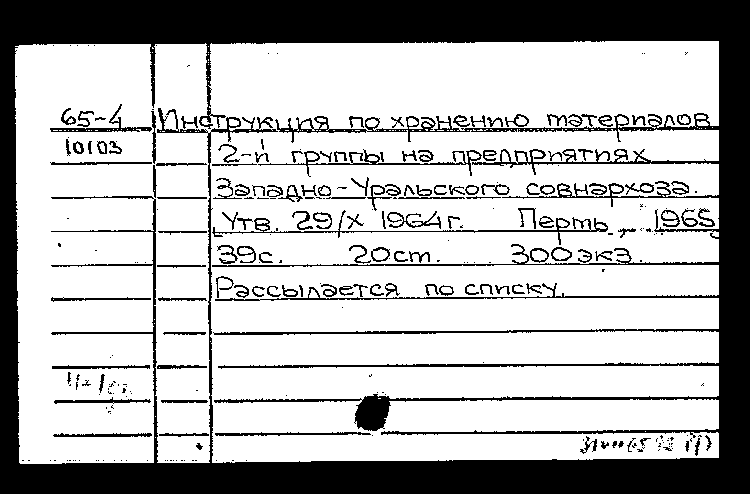 65-4 Инструкция по хранению материалов
10103 2-й группы на предприятиях
Западно-Уральского совнархоза.
Утв. 29/X 1964г. Пермь, 1965
39с. 20ст. 300 экз.
Рассылается по списку.